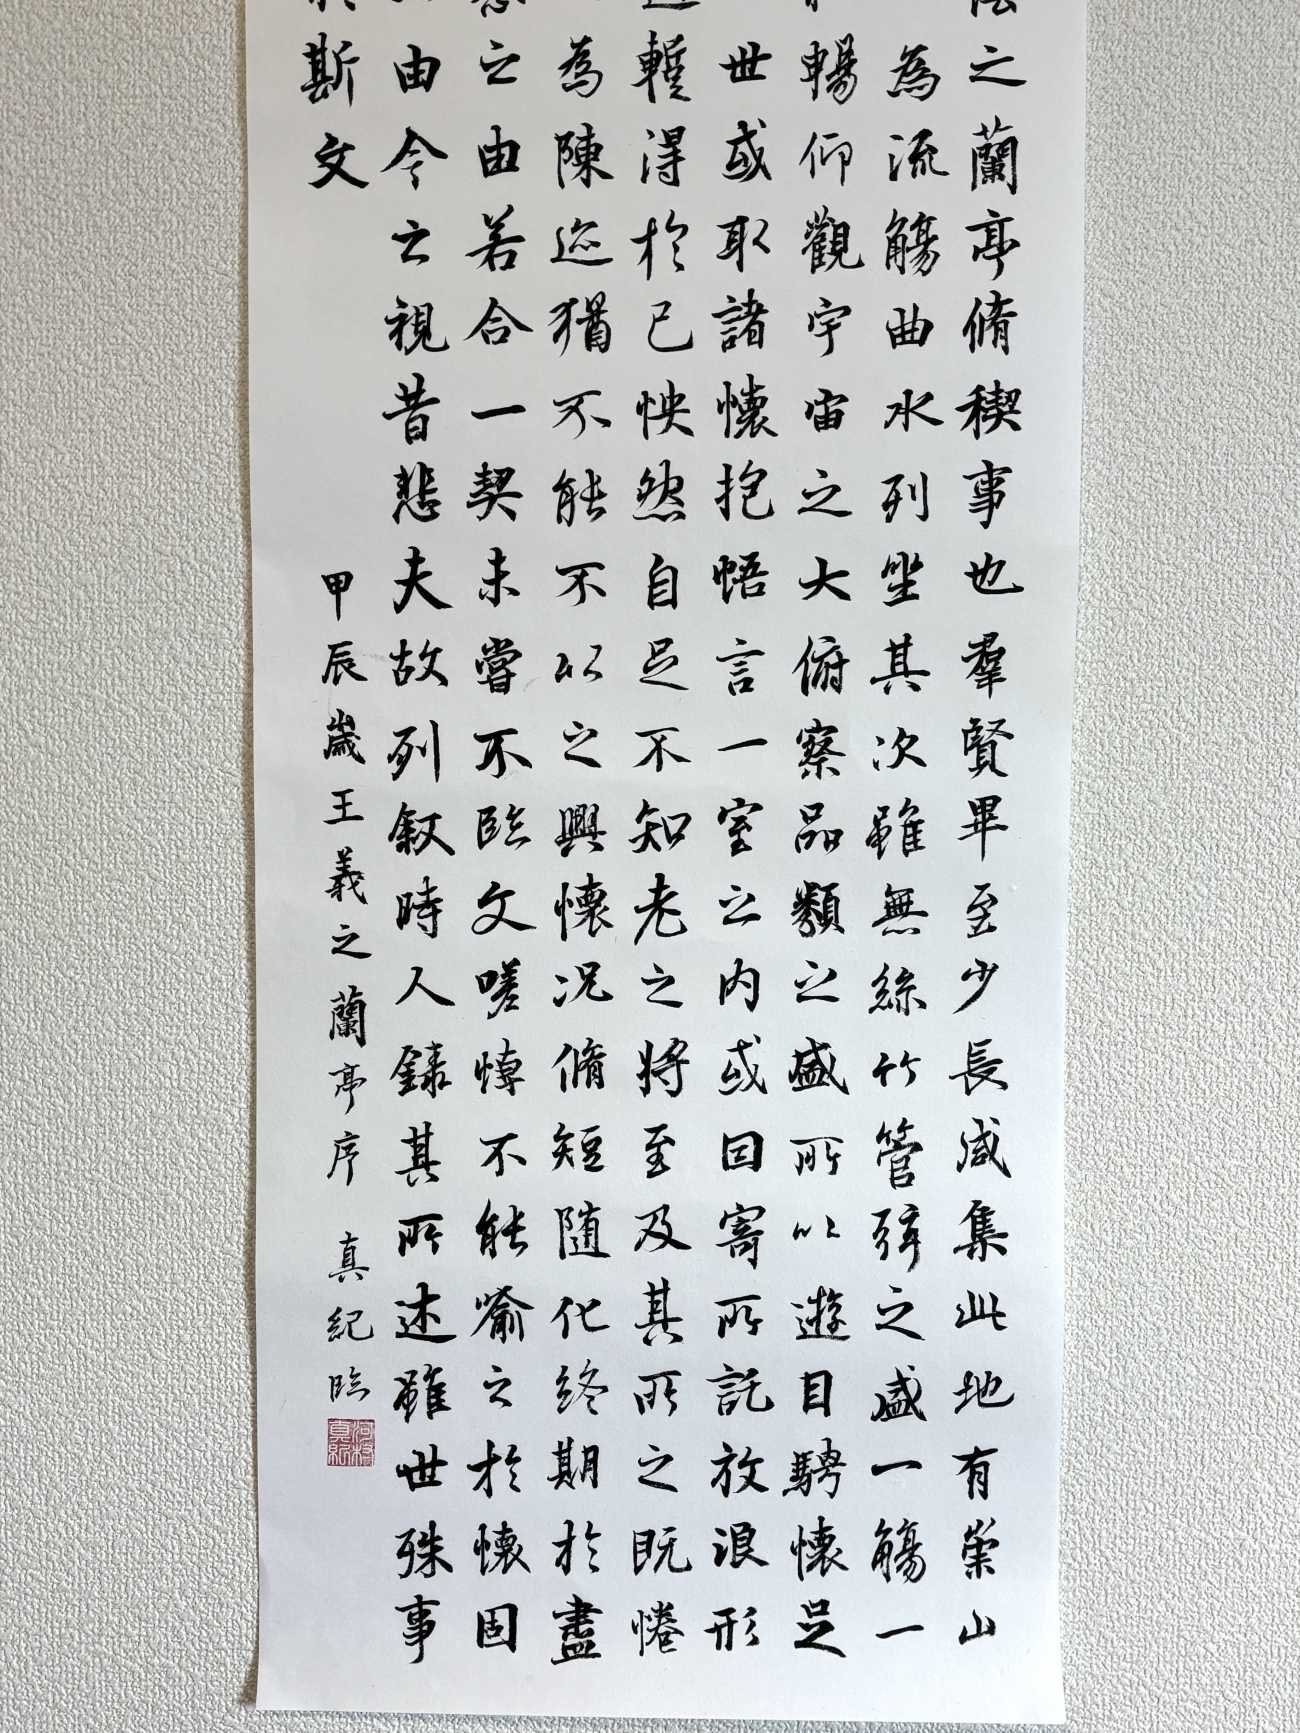 之蘭亭脩稧事也羣賢畢至少長咸集此地有崇山
為流觴曲水列坐其次雖無絲竹管弦之盛一觴一
暢仰觀宇宙之大俯察品類之盛所以遊目騁懷足
世或取諸懷抱悟言一室之内或因寄所託放浪形
蹔得於己怏然自足不知老之將至及其所之既惓
為陳迹猶不能不以之興懷況脩短隨化終期於盡
之由若合一契未嘗不臨文嗟悼不能喻之於懷固
由今之視昔悲夫故列叙時人録其所述雖世殊事
斯文
甲辰歲王羲之蘭亭序 真紀臨